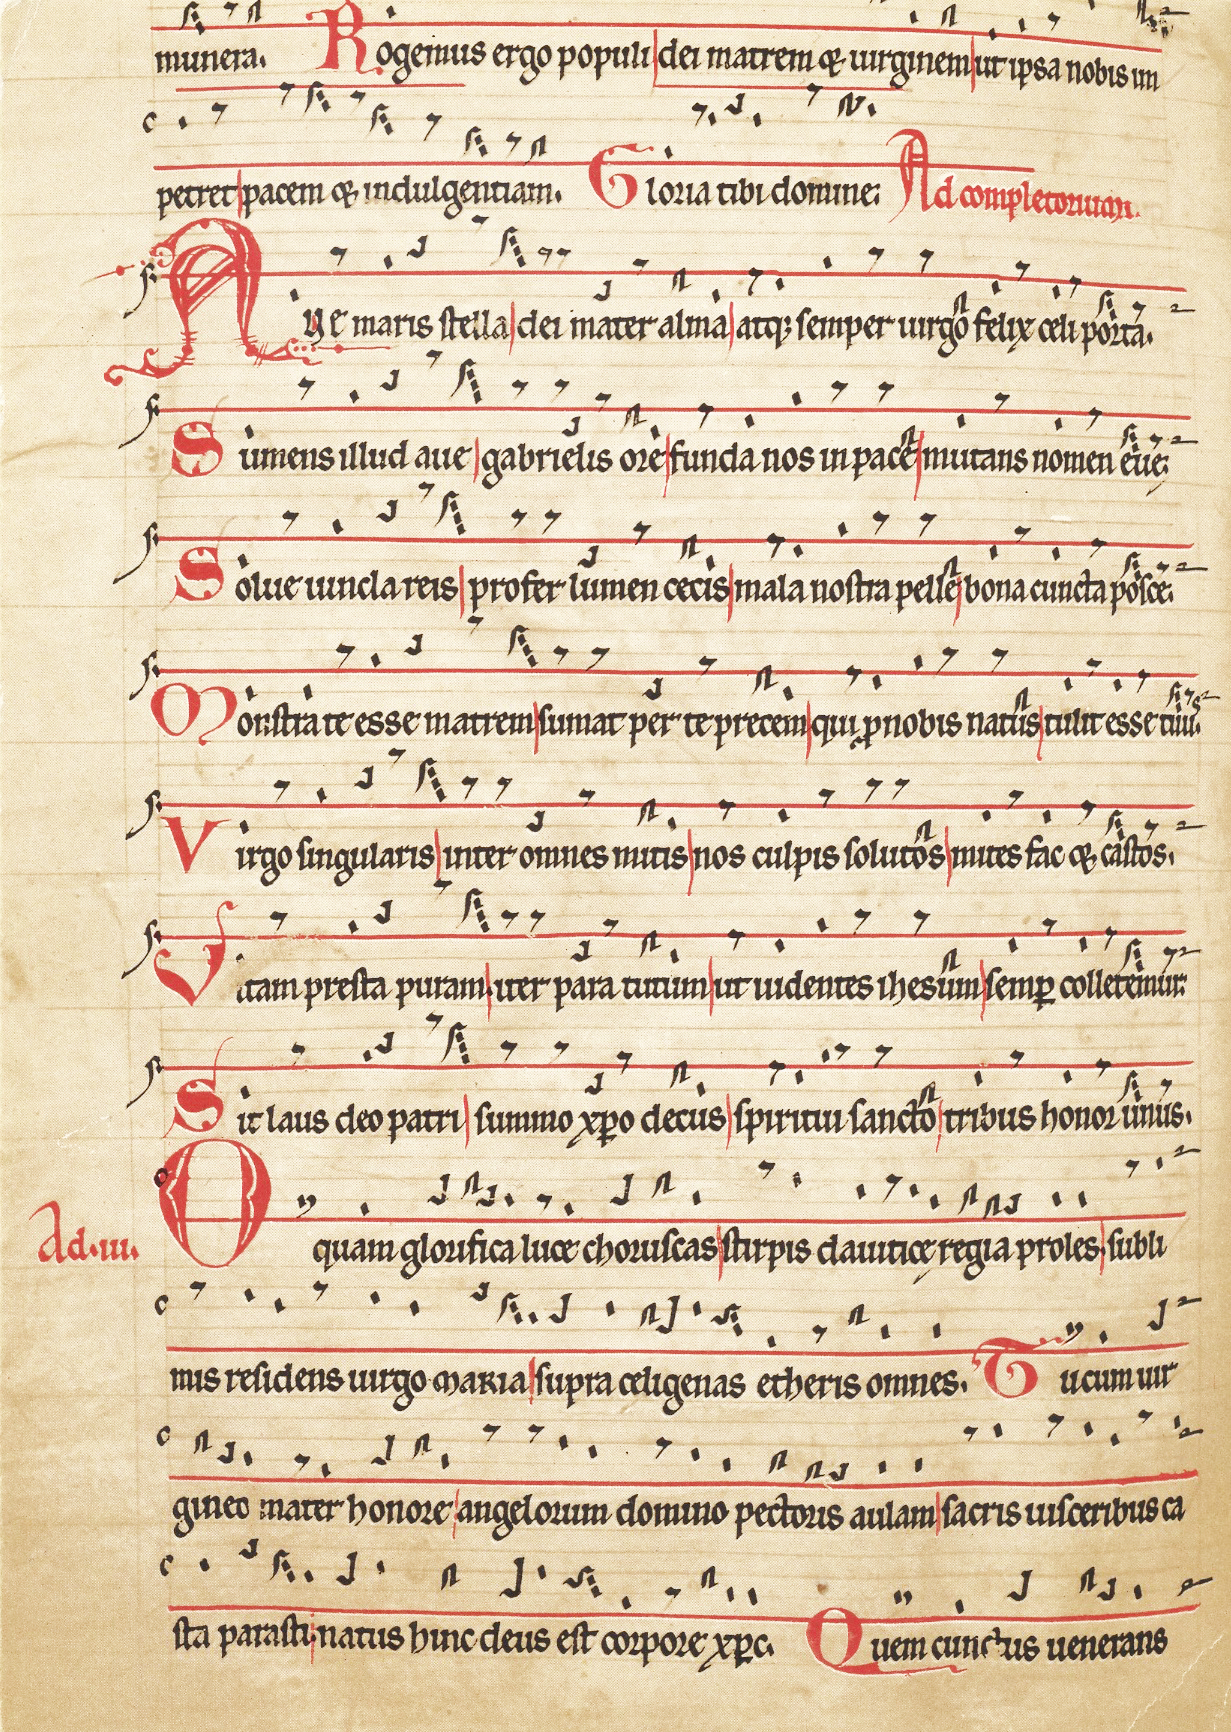 munera. Rogemus ergo populi dei matrem & uirginem ut ipsa nobis im
petret pacem & indulgentiam. Gloria tibi domine. Ad completorium.
Aue maris stella dei mater alma atq; semper uirgo felix celi porta.
Sumens illud aue gabrielis ore funda nos in pace mutans nomen eue.
Solue uincla reis profer lumen cecis mala nostra pelle bona cuncta posce.
Monstra te esse matrem sumat per te precem qui p nobis natus tulit esse tuus.
Virgo singularis inter omnes mitis nos culpis solutos mites fac & castos.
Vitam presta puram iter para tutum ut uidentes ihesum semp colletemur.
Sit laus deo patri summo xpo decus spiritui sancto tribus honor unus.
Ad .iii. O quam glorifica luce choruscas stirpis dauitice regia proles subli
mis residens uirgo maria supra celigenas etheris omnes. Tu cum uir
gineo mater honore angelorum domino pectoris aulam sacris uisceribus ca
sta parasti natus hinc deus est corpore xpc. Quem cunctus uenerans